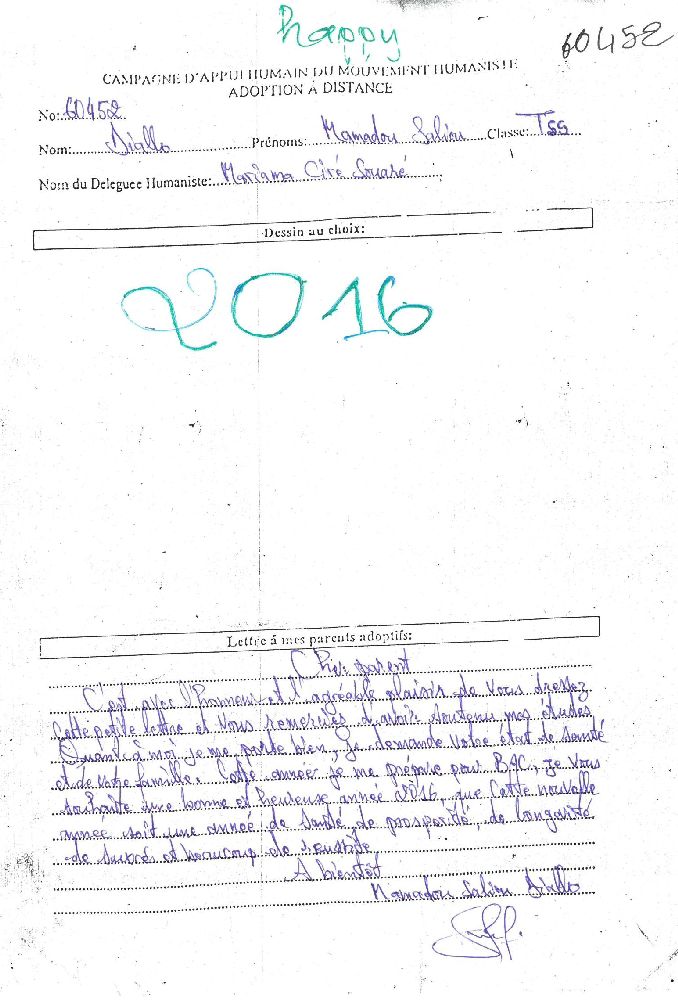 happy
60452
CAMPAGNE D'APPUI HUMAIN DU MOUVEMENT HUMANISTE
ADOPTION À DISTANCE
No: 60452
Nom: Diallo Prénoms: Mamadou Saliou Classe: TSS
Nom du Deleguee Humaniste: Mariama Ciré Souaré
Dessin au choix:
2016
Lettre à mes parents adoptifs:
Cher parent
C'est avec l'honneur et l'agréable plaisir de vous dressez
cette petite lettre et vous remerciés d'avoir soutenus mes études
Quant à moi je me porte bien, je demande votre état de santé
et de votre famille. Cette année je me prépare pour BAC, je vous
souhaite une bonne et heureuse année 2016, que cette nouvelle
année soit une année de santé, de prospérité, de longévité
de succès et beaucoup de
A bientôt
Mamadou Saliou Diallo